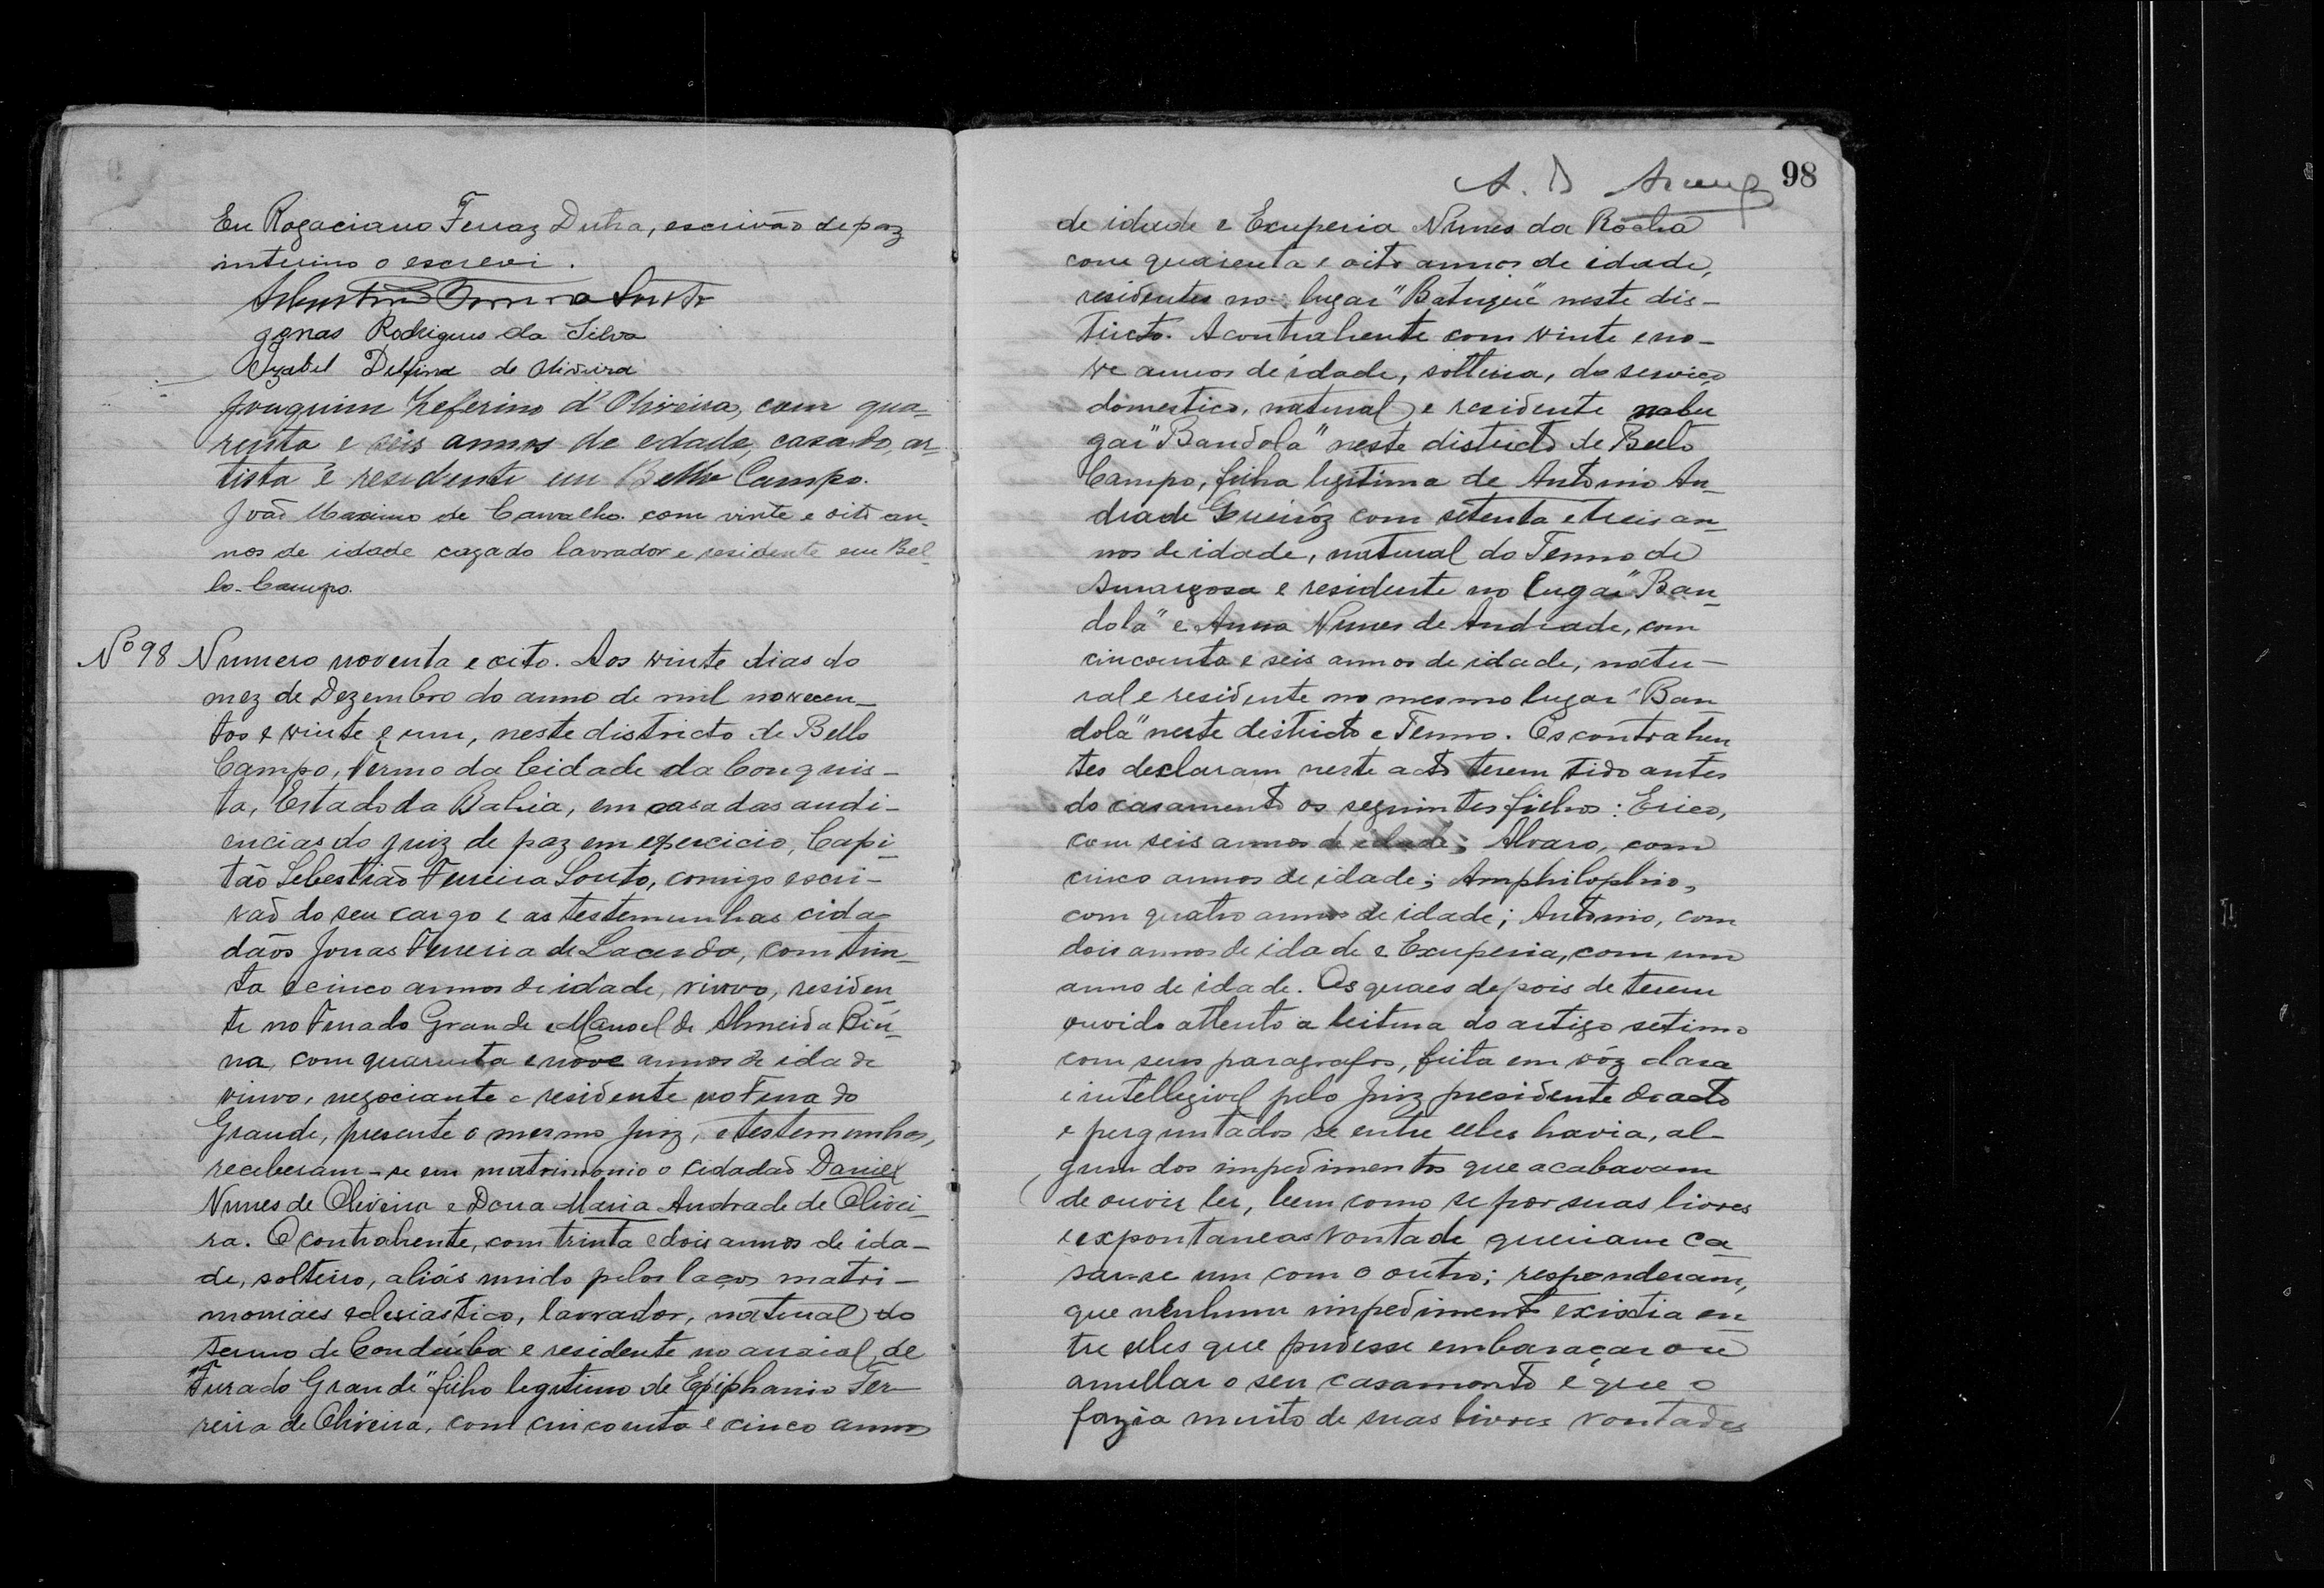 Eu Rogaciano Ferraz Dutra, escrivão de paz
interino o escrevi.
Sebastião Ferreira Souto
Jonas Rodrigues da Silva
Izabel Delfina de Oliveira
Joaquim Zeferino d'Oliveira, com qua-
renta e seis annos de edade, casado, ar
tista e residente em Bello Campo.
João Maximo de Carvalho com vinte e oito an-
nos de idade cazado lavrador e residente em Bel-
lo-Campo.
Nº 98 Numero noventa e oito. Aos vinte dias do
mez de Dezembro do anno de mil novecen-
tos e vinte e um, neste districto de Bello
Campo, termo da Cidade da Conquis-
ta, Estado da Bahia, em casa das audi-
encias do juiz de paz em exercicio, Capi-
tão Sebastião Ferreira Souto, comigo escri-
vaõ do seu cargo e as testemunhas cida-
dãos Jonas Ferreira de Lacerda, com trin-
ta e cinco annos de idade, viuvo, residen-
te no Furado Grande e Manoel de Almeida
na, com quarenta e nove annos de idade
viuvo, negociante e residente no Furado
Grande, presente o mesmo juiz, e testemunhas,
receberam-se em matrimonio o cidadaõ Daniel
Nunes de Oliveira e Dona Maria Andrade de Olivei-
ra. O contrahente, com trinta e dois annos de ida-
de, solteiro, aliás unido pelos laços matri-
moniaes eclesiastico, lavrador, natural do
termo de Condeúba e residente no arraial de
"Furado Grande" filho legitimo de Epiphanio Fer-
reira de Oliveira, com cincoenta e cinco annos
98
A. D
de idade e Exuperia Nunes da Rocha
com quarenta e oito annos de idade,
residentes no lugar "Batuque" neste dis-
tricto. A contrahente com vinte e no-
ve annos de idade, solteira, do serviço
domestico, natural e residente no lu
gar "Bandola" neste districto de Bello
Campo, filha legitima de Antonio An-
drade Queiróz com setenta e treis an-
nos de idade, natural do Termo de
Amargosa e residente no lugar "Ban-
dola" e Anna Nunes de Andrade, com
cincoenta e seis annos de idade, natu-
ral e residente no mesmo lugar "Ban
dola" neste districto e Termo. Os contrahen
tes declaram neste acto terem tido antes
do casamento os seguintes filhos: Erico,
com seis annos de idade; Alvaro, com
cinco annos de idade; Amphilophio,
com quatro annos de idade; Antonio, com
dois annos de idade e Exuperia, com um
anno de idade. Os quaes depois de terem
ouvido attento a leitura do artigo setimo
com seus paragrafos, feita em vóz clara
e intellegivel pelo Juiz presidente do acto
e perguntados se entre elles havia, al-
gum dos impedimentos que acabavam
de ouvir ler, bem como se por suas livres
e expontaneas vontade queriam ca
sar-se um com o outro; responderam,
que nenhum impedimento existia en
tre elles que pudesse embaraçar ou
anullar o seu casamento e que o
fazia muito de suas livres vontades